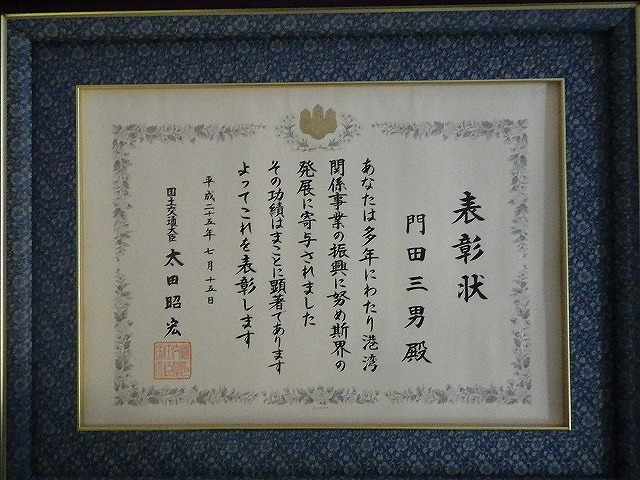 表彰状
門田三男殿
あなたは多年にわたり港湾
関係事業の振興に努め斯界の
発展に寄与されました
その功績はまことに顕著であります
よってこれを表彰します
平成二十五年七月十五日
国土交通大臣 太田昭宏